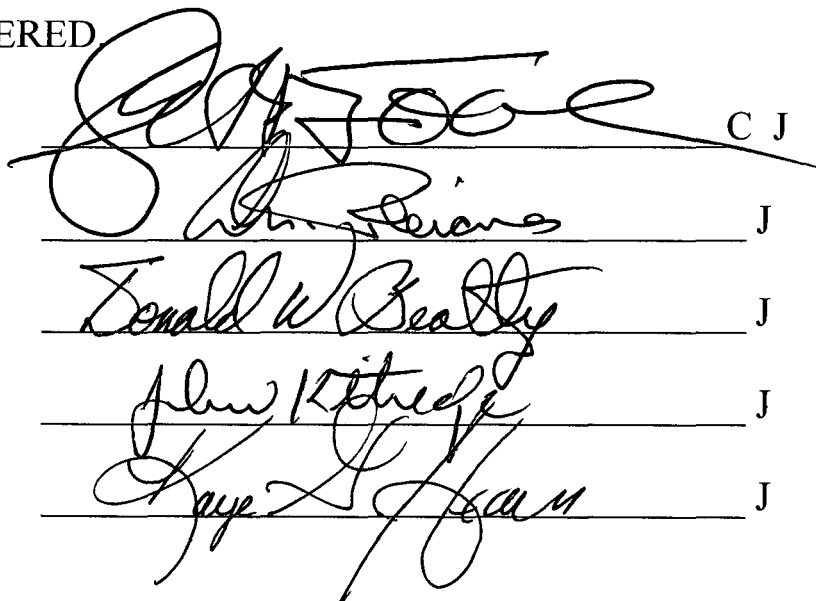 ERED.
C J
J
Donald W Beatty J
John Kittredge J
Kaye G Hearn J